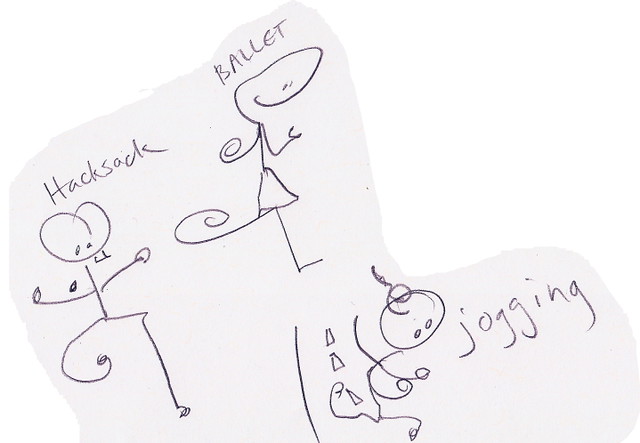 BALLET
Hacksack
jogging